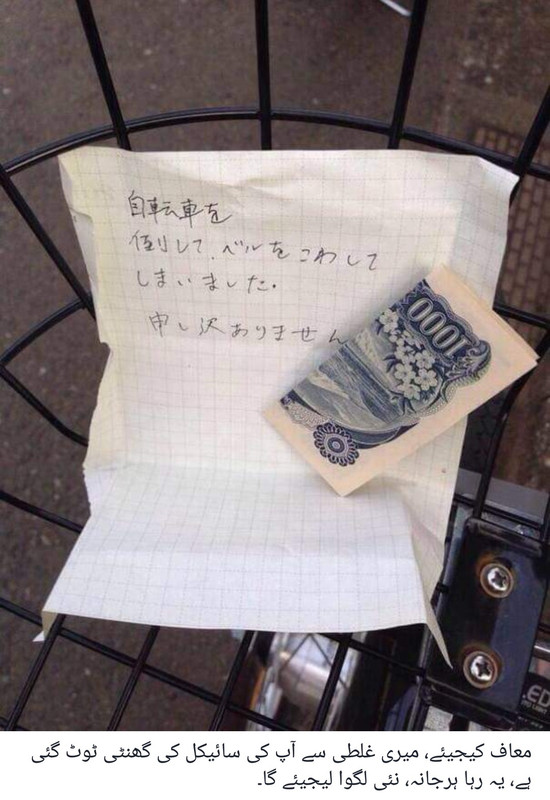 自転車を
倒して、ベルをこわして
しまいました。
申し訳ありません
1000
معاف کیجیئے، میری غلطی سے آپ کی سائیکل کی گھنٹی ٹوٹ گئی
ہے، یہ رہا ہرجانہ، نئی لگوا لیجیئے گا۔